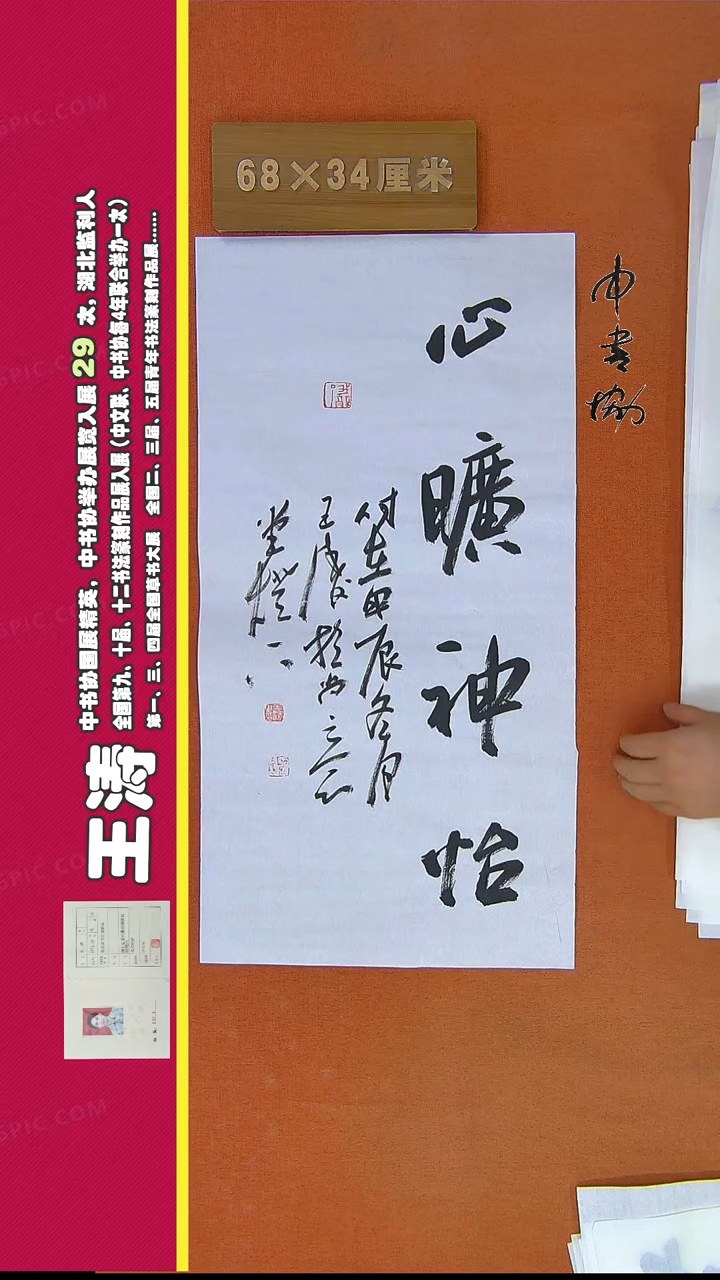 68×34厘米
心曠神怡
时在甲辰冬月
中書協
王涛
中书协国展精英，中书协举办展览入展 29 次，湖北监利人
全国第九、十届、十二书法篆刻作品展入展（中文联、中书协每4年联合举办一次）
第一、三、四届全国草书大展 全国二、三届、五届青年书法篆刻作品展……